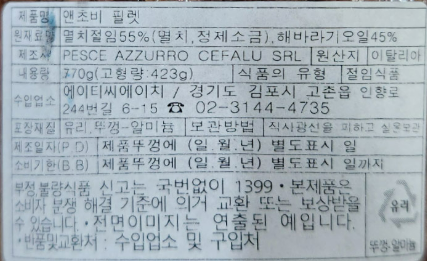 제품명 앤초비 필렛
원재료명 멸치절임55%(멸치,정제소금),해바라기오일45%
제조사 PESCE AZZURRO CEFALU SRL 원산지 이탈리아
내용량 770g(고형량:423g) 식품의 유형 절임식품
수입업소 에이티씨에이치 / 경기도 김포시 고촌읍 인향로
244번길 6-15 ☎ 02-3144-4735
포장재질 유리,뚜껑-알미늄 보관방법 직사광선을 피하고 실온보관
제조일자(P.D) 제품뚜껑에 (일.월.년) 별도표시 일
소비기한(B.B) 제품뚜껑에 (일.월.년) 별도표시 일까지
부정·불량식품 신고는 국번없이 1399 • 본제품은
소비자 분쟁 해결 기준에 의거 교환 또는 보상받을
수 있습니다. • 전면이미지는 연출된 예입니다.
• 반품및교환처 : 수입업소 및 구입처
유리
뚜껑:알미늄